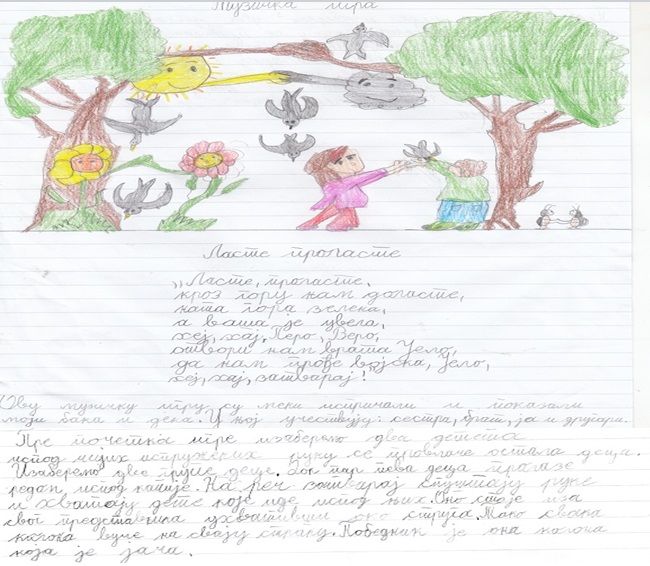 Музичка игра
Ласте проласте
„Ласте, проласте,
кроз гору нам доласте,
наша гора зелена,
а ваша је цвела,
хеј, хај, Перо, Веро,
отвори нам врата Јело,
да нам прође војска, Јело,
хеј, хај, затварај!"
Ову музичку игру су мени испричали и показали
моји бака и дека. У њој учествују: сестра, брат, ја и другари.
Пре почетка игре изаберемо два детета
испод чијих испружених руку се провлаче остала деца.
Изаберемо две групе деце. Док пар пева деца пролазе
редом испод капије. На реч затварај спуштају руке
и хватају дете које иде испод њих. Оно стаје иза
свог представника ухвативши око струка. Тако свака
колона вуче на своју страну. Победник је она колона
која је јача.